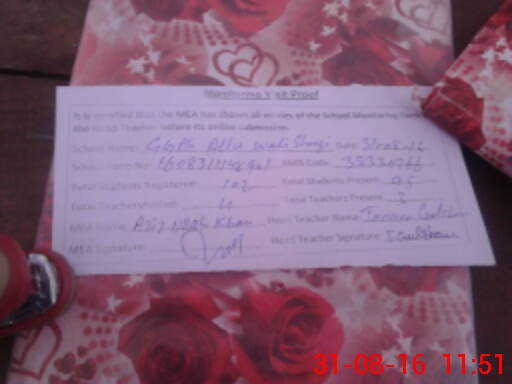 Monitoring Visit Proof
It is certified that the MEA has shown all entries of the School Monitoring Form to
the Head Teacher before its online submission.
School Name: GGPS Allu Wali Sharqi Date: 31-08-16
School Form No: EMIS Code:
Total Students Registered: 102 Total Students Present: 95
Total Teachers Posted: 4 Total Teachers Present: 2
MEA Name: Aziz Ullah Khan Head Teacher Name:
MEA Signature: Head Teacher Signature:
31-08-16 11:51